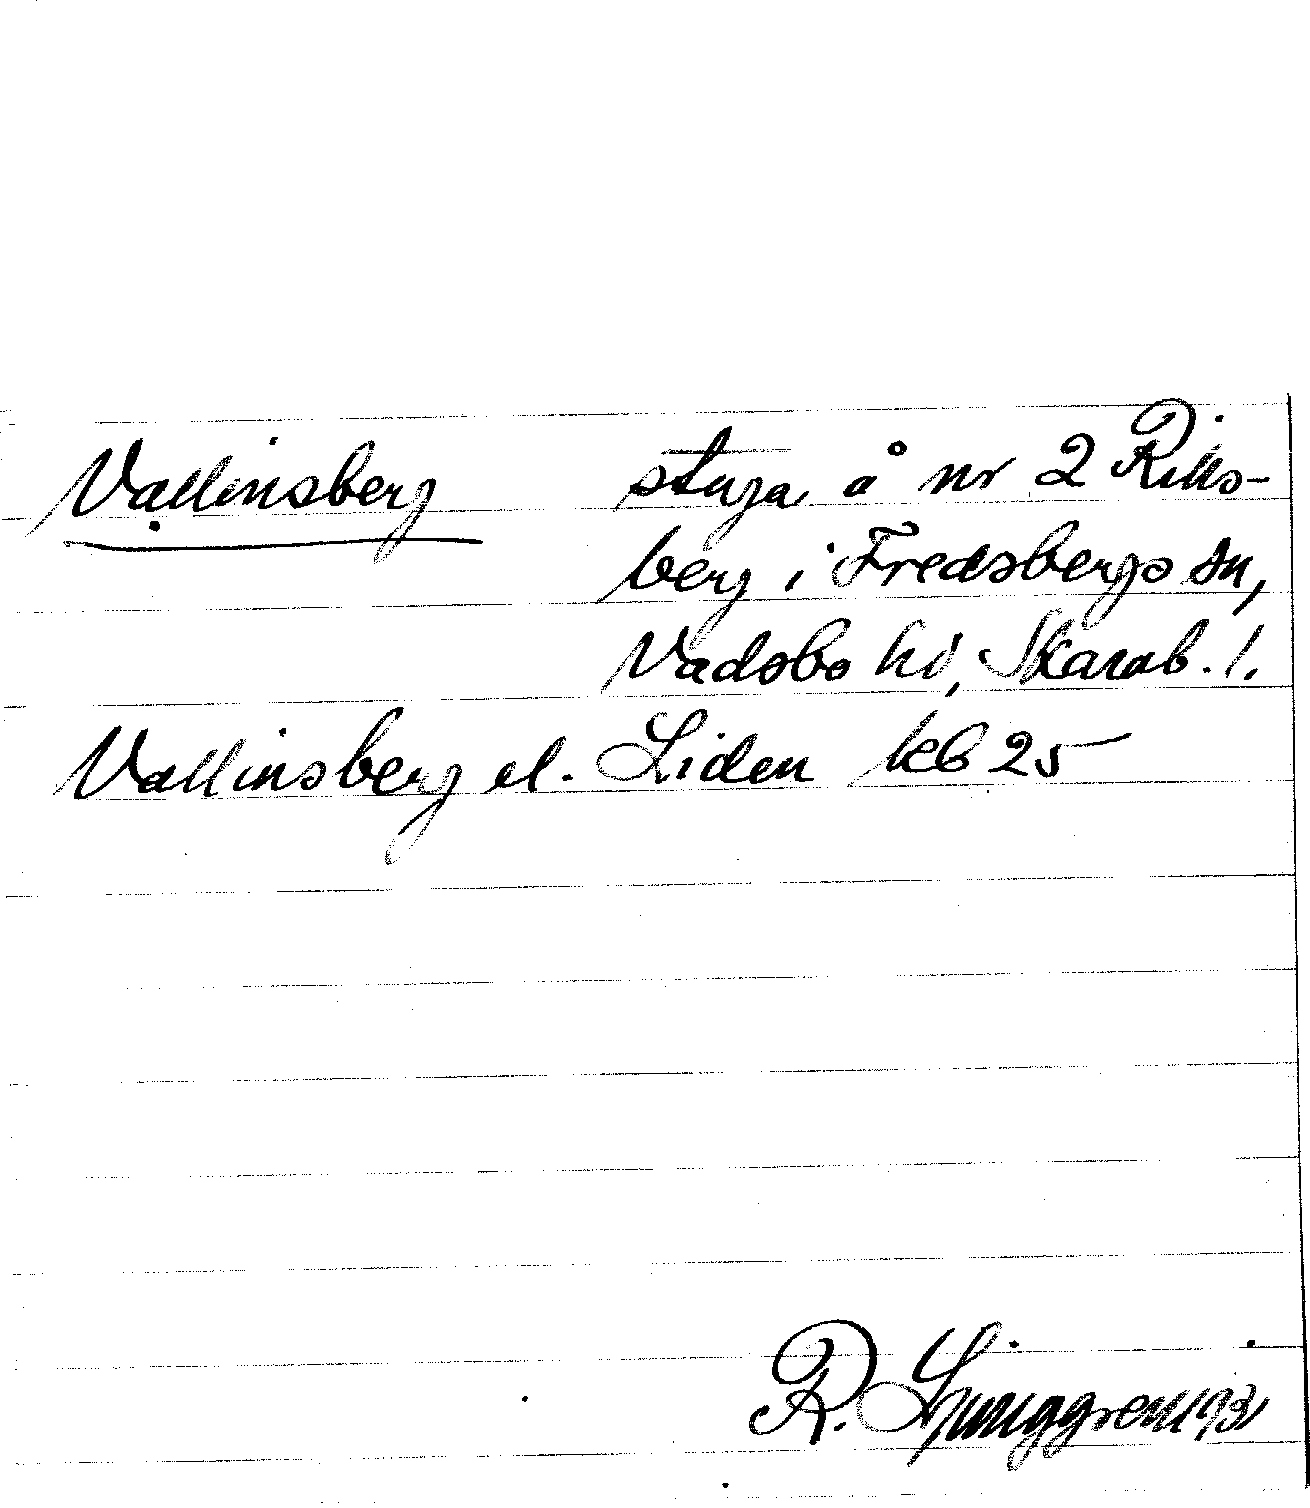 Vallinsberg stuga å nr 2 Rills-
berg i Fredsbergs sn,
Vadsbo hd, Skarab. l.
Vallinsberg el. Liden kb 25
R. Ljunggren 193